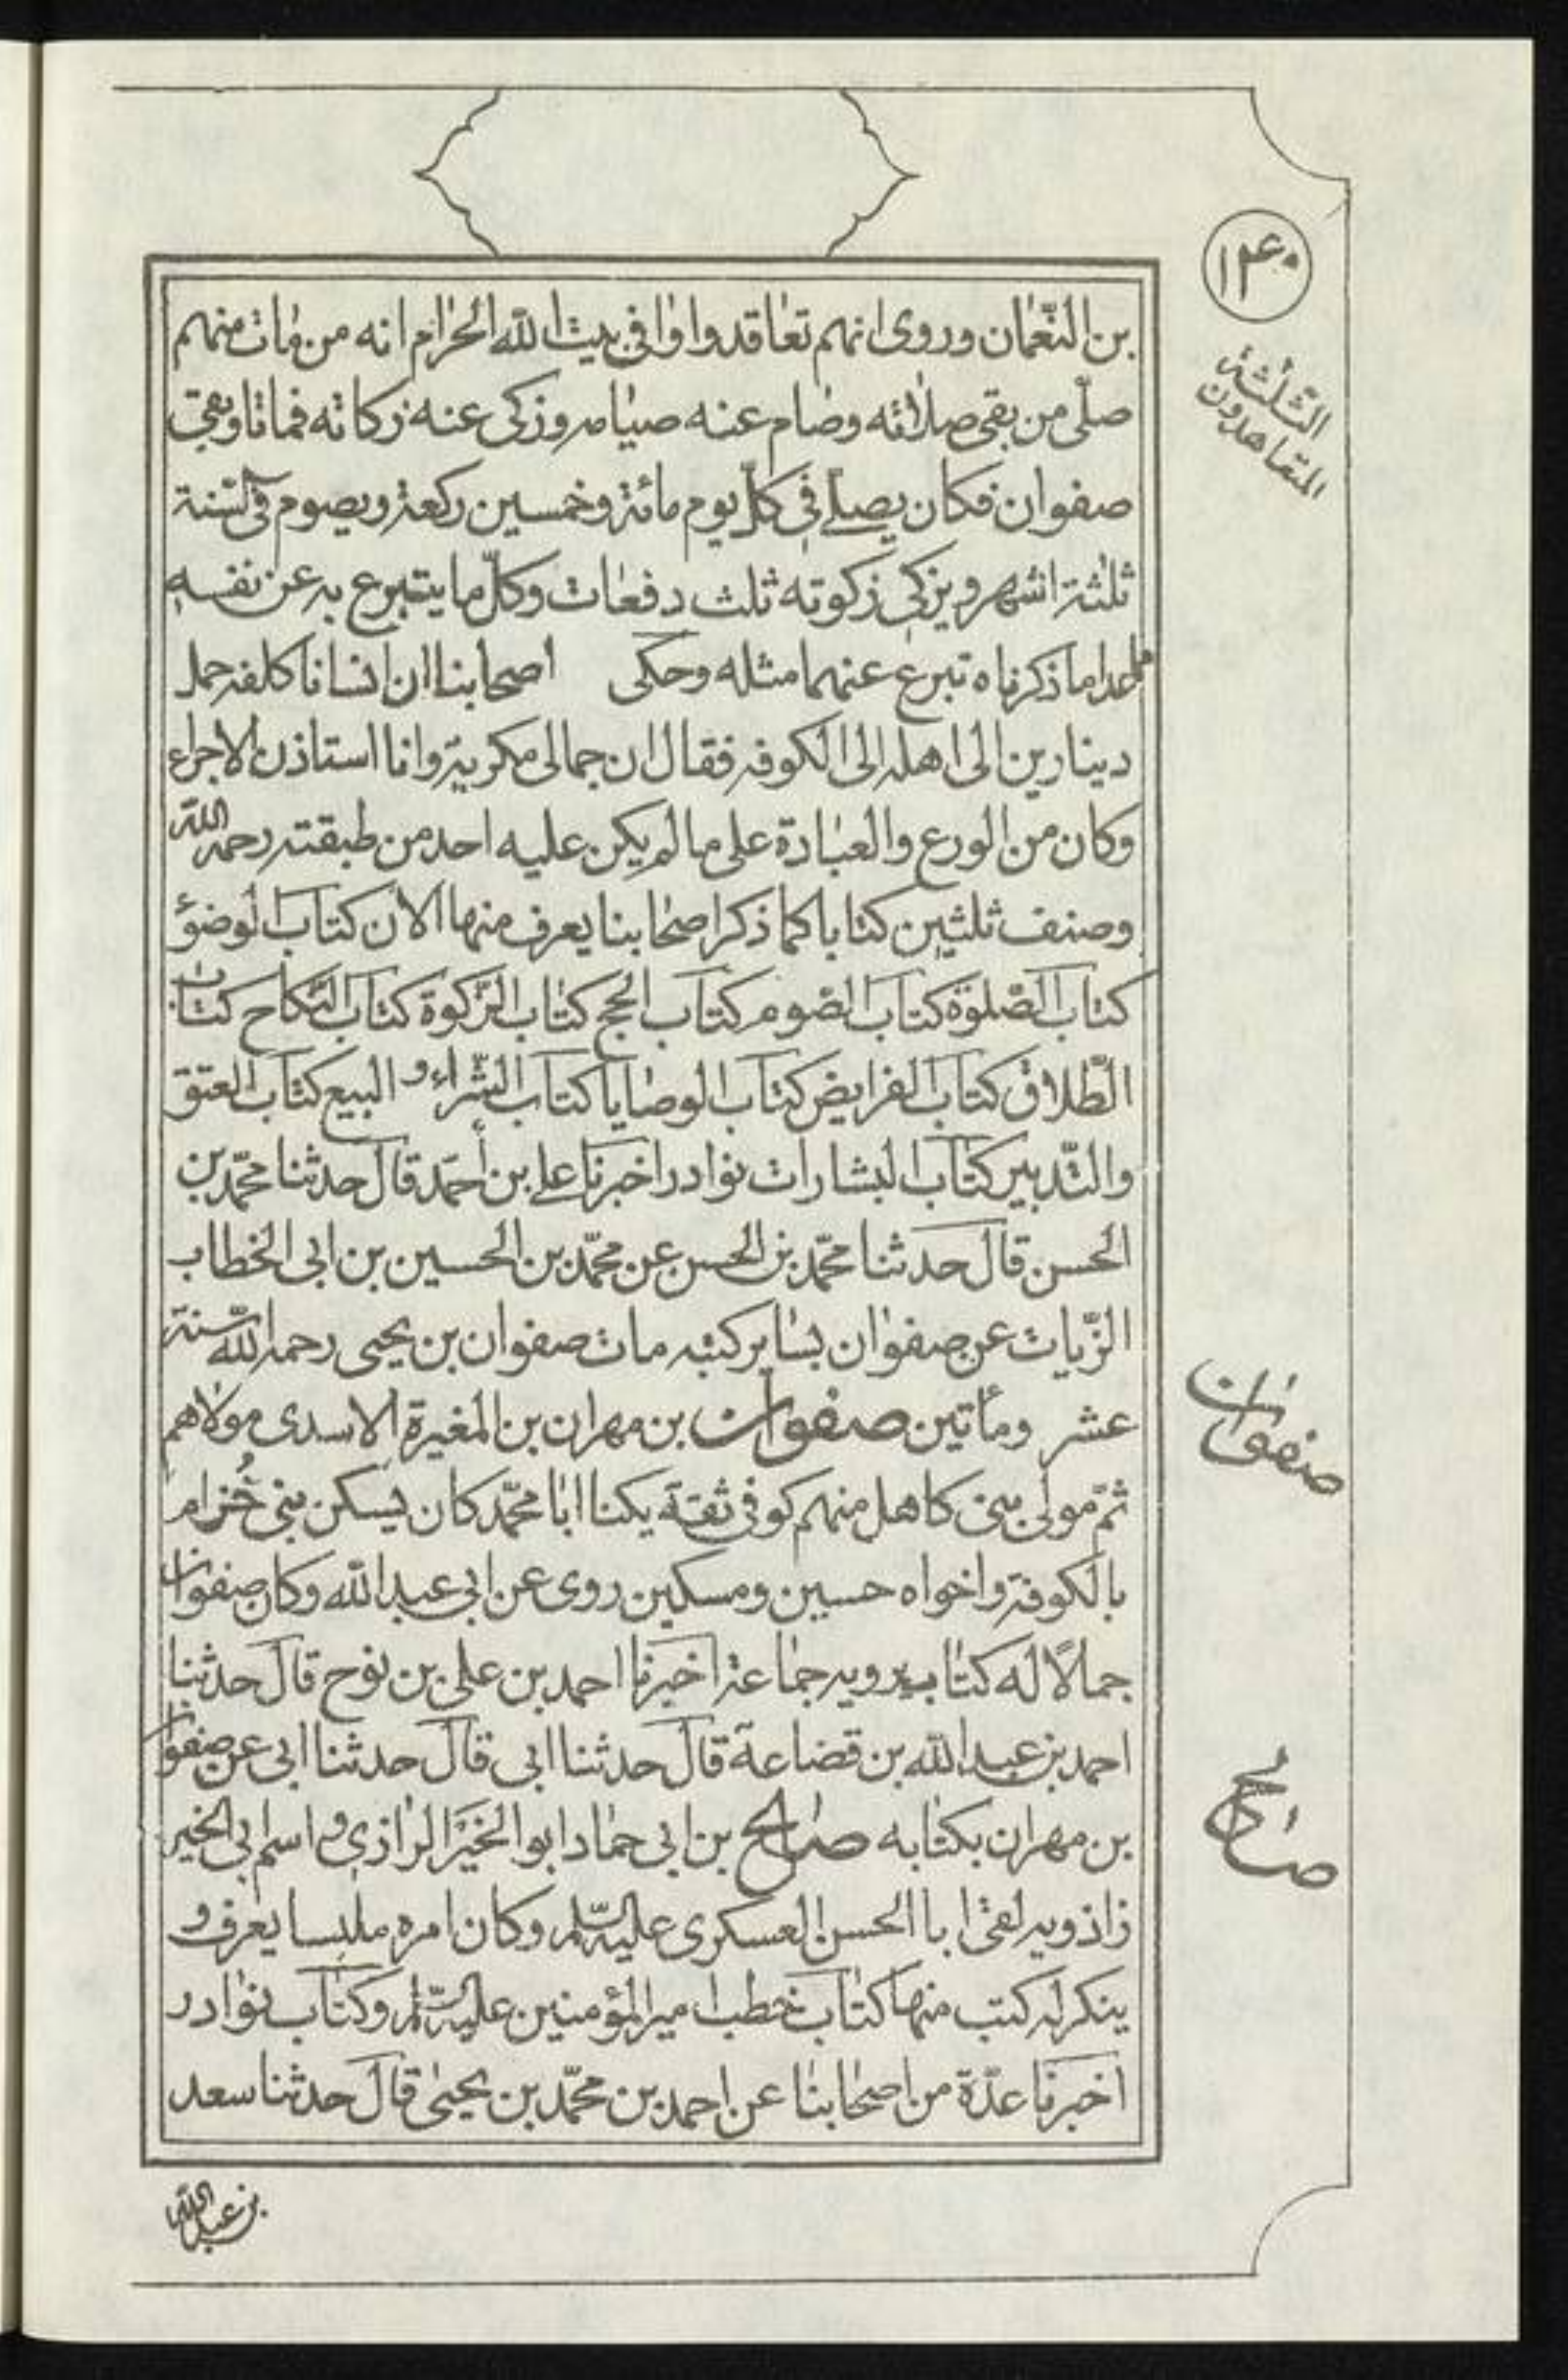 ۱۴۰
الثلثة
المتعاهدون
بن النّعمان وروى انهم تعاقدوا وافى بيت الله الحرام انه من مات منهم
صلّى من بقى صلاته وصام عنه صيامه وزكى عنه زكاته فماتا وبقى
صفوان فكان يصلى فى كلّ يوم مائة وخمسين ركعة ويصوم فى السّنة
ثلثة اشهر ويزكى زكوته ثلث دفعات وكلّ ما يتبرع به عن نفسه
مما عدا ما ذكرناه تبرع عنهما مثله وحكى اصحابنا ان انسانا كلفه حمل
دينارين الى اهله الى الكوفه فقال ان جمالى مكرية وانا استاذن الاجراء
وكان من الورع والعبادة على ما لم يكن عليه احد من طبقته رحمه الله
وصنف ثلثين كتابا كما ذكر اصحابنا يعرف منها الان كتاب الوضوء
كتاب الصّلوة كتاب الصّوم كتاب الحج كتاب الزّكوة كتاب النّكاح كتاب
الطّلاق كتاب الفرايض كتاب الوصايا كتاب الشّراء و البيع كتاب العتق
والتّدبير كتاب البشارات نوادر اخبرنا على بن أحمد قال حدثنا محمّد بن
الحسن قال حدثنا محمّد بن الحسن عن محمّد بن الحسين بن ابى الخطاب
الزّيات عن صفوان بساير كتبه مات صفوان بن يحيى رحمه الله سنة
عشر ومأتين صفوان بن مهران بن المغيرة الاسدى مولاهم
ثمّ مولى بنى كاهل منهم كوفى ثقة يكنا ابا محمّد كان يسكن بنى حُزام
بالكوفة واخواه حسين ومسكين روى عن ابى عبد الله وكان صفوان
جمالاً له كتاب يرويه جماعة اخبرنا احمد بن على بن نوح قال حدثنا
احمد بن عبد الله بن قضاعة قال حدثنا ابى قال حدثنا ابى عن صفوان
بن مهران بكتابه صالح بن ابى حماد ابو الخير الرازى و اسم ابى الخير
زاذويه لقى ابا الحسن العسكرى عليه السّلم وكان امره ملبسا يعرف و
ينكر له كتب منها كتاب خطب امير المؤمنين عليه السّلم وكتاب نوادر
اخبرنا عدّة من اصحابنا عن احمد بن محمّد بن يحيى قال حدثنا سعد
صفوان
صالح
بن عبد الله